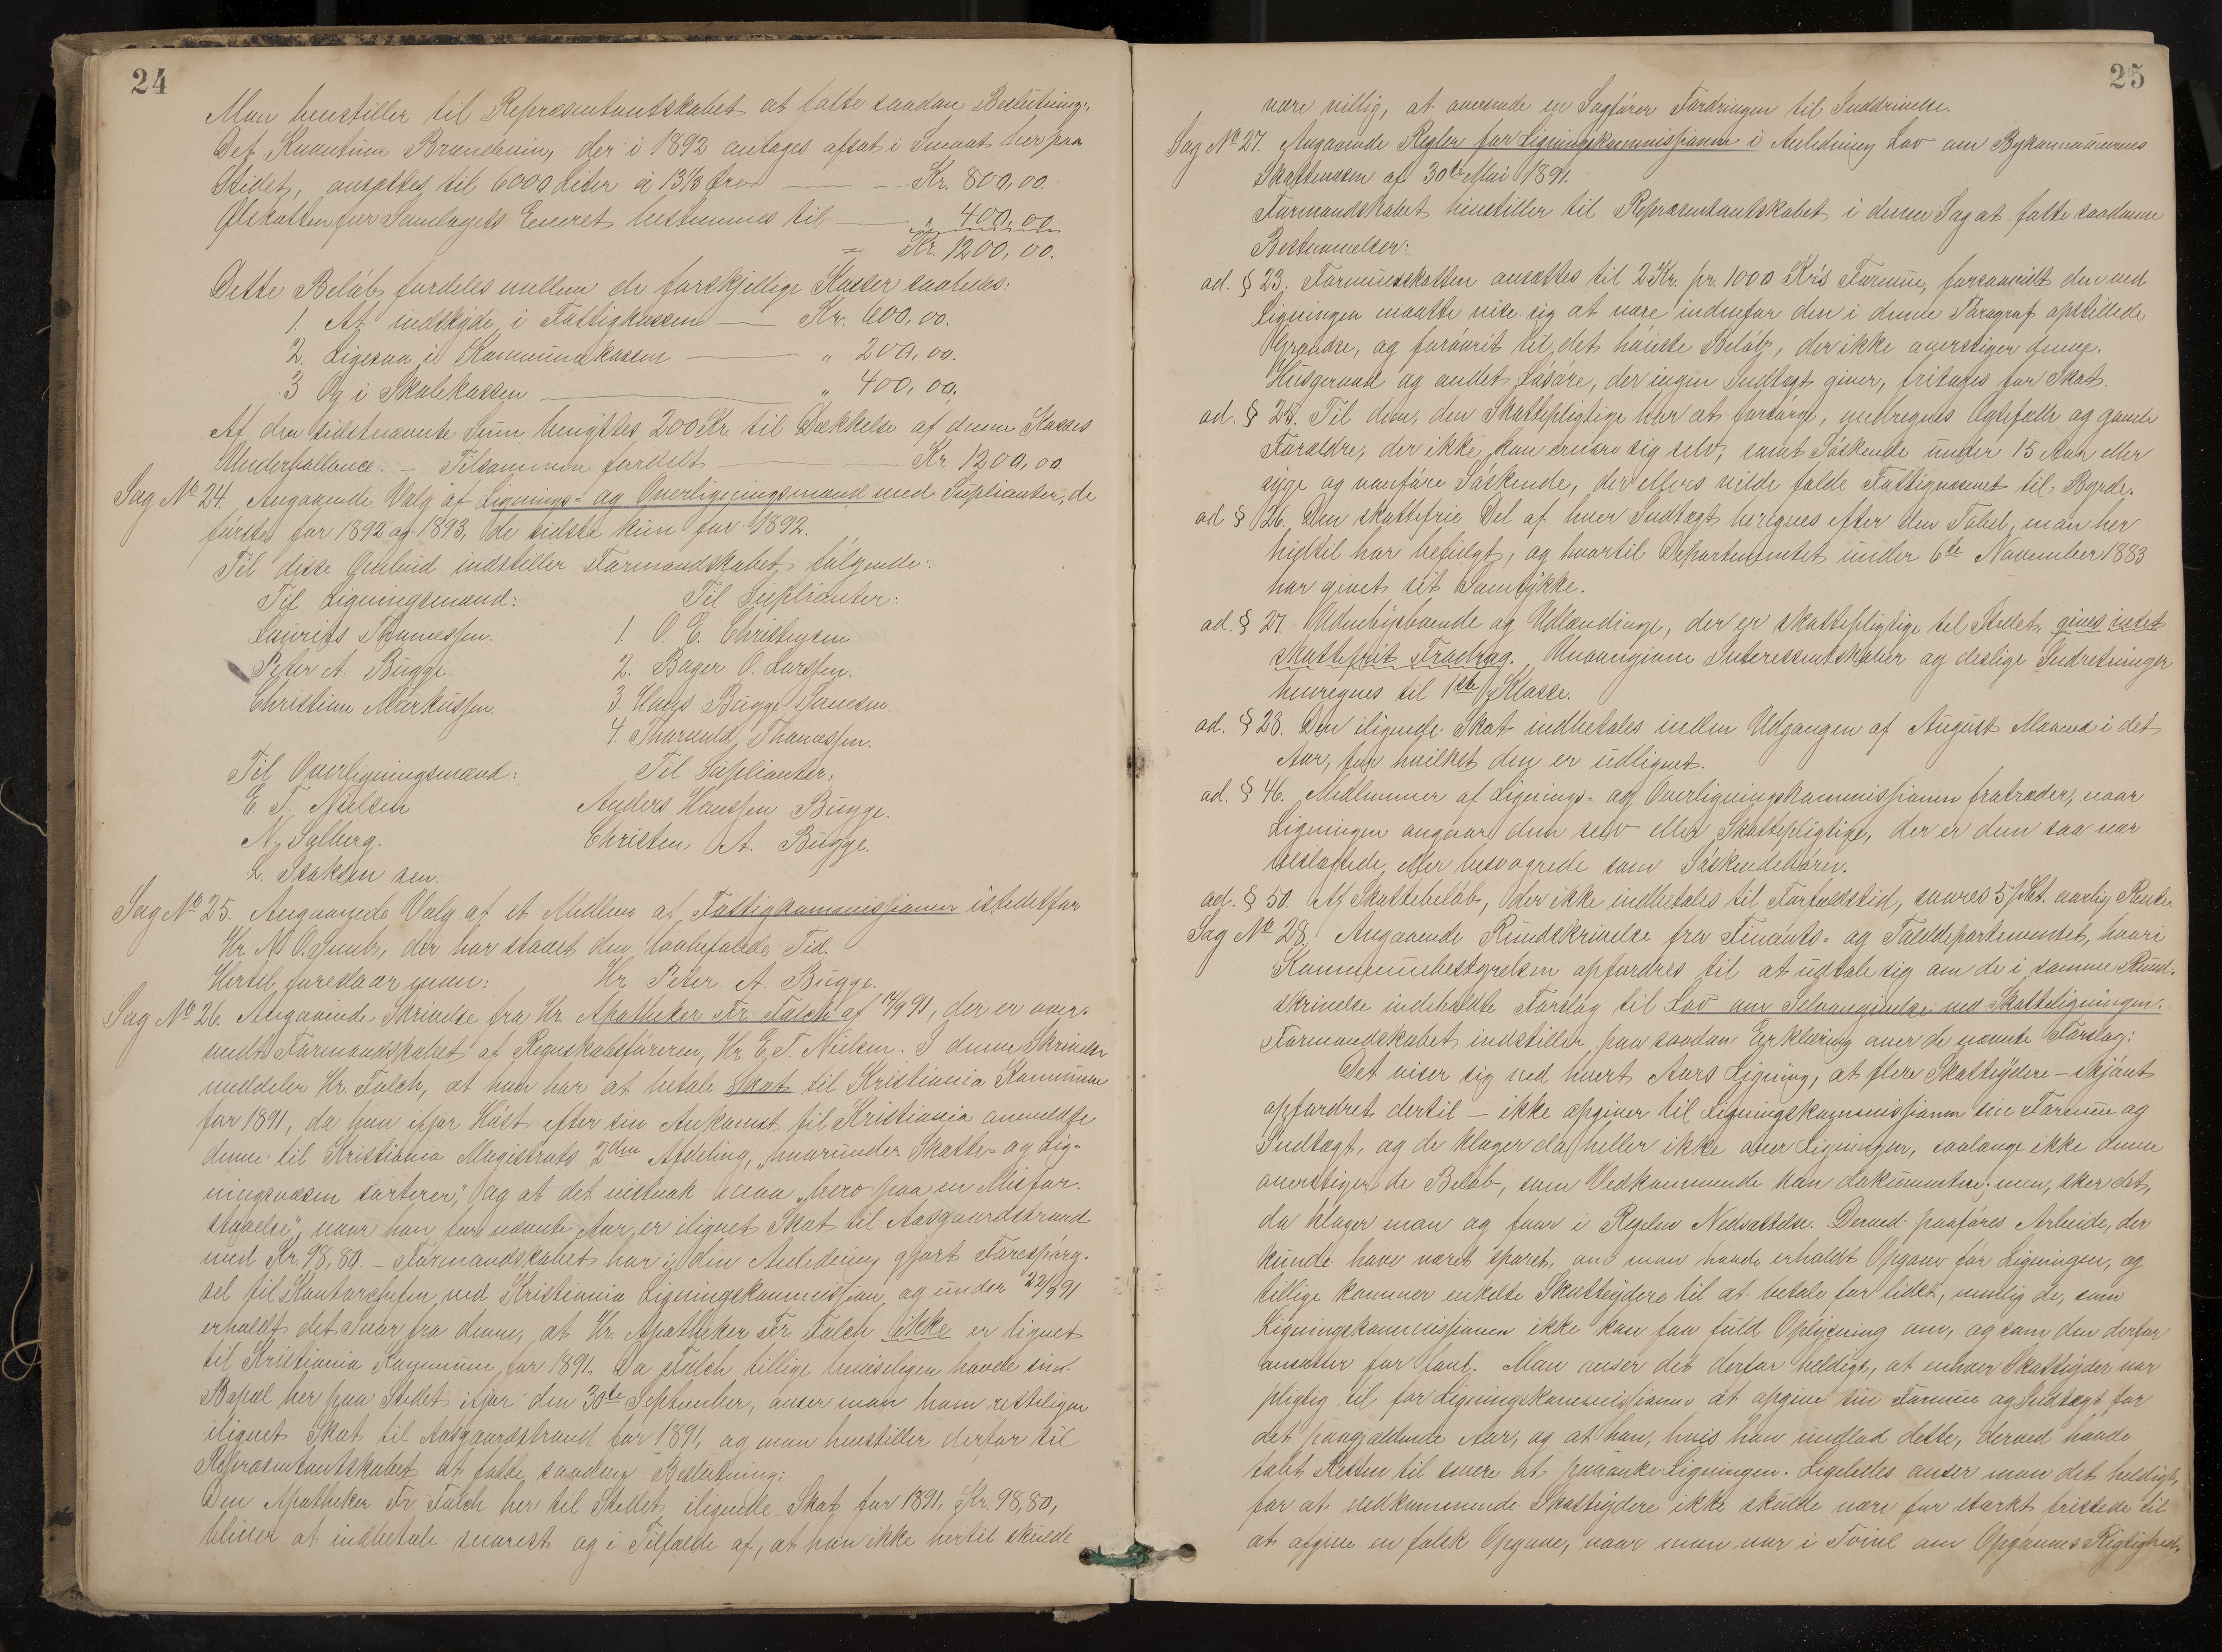 24
Man henstiller til Repræsentantskabet at fatte saadan Beslutning:
Det Kvantum Brændevin, der i 1892 antages afsat i Smaat her paa
Stedet, ansættes til 6000 Liter à 13⅓ Øre — Kr. 800,00.
Ølskatten for Samlagets Eneret bestemmes til — " 400,00
= Kr. 1200,00.
Dette Beløb fordeles mellem de forskjellige Kasser saaledes:
1. At indskyde i Fattigkassen — Kr. 600,00.
2. Ligesaa i Kommunekassen — " 200,00.
3 Og i Skolekassen — " 400,00.
Af den sidstnævnte Sum benyttes 200 Kr. til Dækkelse af denne Kasses
Underballance. – Tilsammen fordelt — Kr. 1200,00.
Sag No 24. Angaaende Valg af Lignings- og Overligningsmænd med Suplianter, de
første for 1892 og 1893, de sidste kun for 1892.
Til disse Ombud indstiller Formandskabet følgende:
Til Ligningsmænd: Til Suplianter:
Laurits Thomessen. 1. O. E. Christensen
Peter A. Bugge. 2. Bager O. Larssen.
Christian Markussen. 3. Hans Bugge Jansen.
4. Thorvald Thomessen.
Til Overligningsmænd: Til Suplianter:
E. T. Nielsen Anders Hanssen Bugge.
N. Solberg. Christen A. Bugge.
L. Isaksen sen.
Sag No 25. Angaaende Valg af et Medlem af Fattigkommissionen istedetfor
Hr. N. O. Lund, der har staaet den lovbefalede Tid.
Hertil foreslaar man: Hr. Peter A. Bugge.
Sag No 26. Angaaende Skrivelse fra Hr. Apotheker Fr. Falch af 14/9 91, der er over-
sendt Formandskabet af Regnskabsføreren, Hr. E. T. Nielsen. I denne Skrivelse
meddeler Hr. Falch, at han har at betale Skat til Kristiania Kommune
for 1891, da han ifjor Høst efter sin Ankomst til Kristiania anmeldte
denne til Kristiania Magistrats 2den Afdeling, „hvorunder Skatte- og Lig-
ningsvæsen sorterer", og at det vistnok maa „bero paa en Misfor-
staaelse", naar han for nævnte Aar er ilignet Skat til Aasgaardstrand
med Kr. 98,80. – Formandskabet har i den Anledning gjort Forespørg-
sel til Kontorchefen ved Kristiania Ligningskommission, og under 22/9 91
erholdt det Svar fra denne, at Hr. Apotheker Fr. Falch ikke er lignet
til Kristiania Kommune for 1891. Da Falch tillige beviseligen havde sin
Bopæl her paa Stedet ifjor den 30te September, anser man ham retteligen
ilignet Skat til Aasgaardstrand for 1891, og man henstiller derfor til
Repræsentantskabet at fatte saadan Beslutning:
Den Apotheker Fr. Falch her til Stedet ilignede Skat for 1891, Kr. 98,80,
bliver at indbetale snarest og i Tilfælde af, at han ikke hertil skulde
25
være villig, at oversende en Sagfører Fordringen til Inddrivelse.
Sag No 27. Angaaende Regler for Ligningskommissionen i Anledning Lov om Bykommunernes
Skattevæsen af 30te Mai 1891.
Formandskabet henstiller til Repræsentantskabet i denne Sag at fatte saadanne
Bestemmelser:
ad. § 23. Formuesskatten ansættes til 2 Kr. pr. 1000 Kr's Formue, forsaavidt den ved
Ligningen maatte vise sig at være indenfor den i denne Paragraf opstillede
Grændse, og forøvrit til det høieste Beløb, der ikke overstiger denne.
Husgeraad og andet Løsøre, der ingen Indtægt giver, fritages for Skat.
ad. § 25. Til dem, den Skattepligtige har at forsørge, medregnes Ægtefælle og gamle
Forældre, der ikke kan ernære sig selv, samt Søskende under 15 Aar eller
syge og vanføre Søskende, der ellers vilde falde Fattigvæsenet til Byrde.
ad § 26. Den skattefrie Del af hver Indtægt beregnes efter den Tabel, man her
hidtil har befulgt, og hvortil Departementet under 6te November 1883
har givet sit Samtykke.
ad. § 27. Udenbysboende og Udlændinge, der er skattepligtige til Stedet, gives intet
skattefrit Fradrag. Unavngivne Interessentskaber og deslige Indretninger
henregnes til 1ste Klasse.
ad. § 28. Den ilignede Skat indbetales inden Udgangen af August Maaned i det
Aar, for hvilket den er udlignet.
ad. § 46. Medlemmer af Lignings- og Overligningskommissionen fratræder, naar
Ligningen angaar dem selv eller Skattepligtige, der er dem saa nær
beslægtede eller besvogrede som Søskendebørn.
ad. § 50. Af Skattebeløb, der ikke indbetales til Forfaldstid, svares 5 pCt. aarlig Rente.
Sag No 28. Angaaende Rundskrivelse fra Finants- og Tolddepartementet, hvori
Kommunebestyrelsen opfordres til at udtale sig om de i samme Rund-
skrivelse indeholdte Forslag til Lov om Selvangivelse ved Skatteligningen.
Formandskabet indstiller paa saadan Erklæring over de nævnte Forslag:
Det viser sig ved hvert Aars Ligning, at flere Skatteydere – skjønt
opfordret dertil – ikke opgiver til Ligningskommissionen sin Formue og
Indtægt, og de klager da heller ikke over Ligningen, saalænge ikke denne
overstiger de Beløb, som Vedkommende kan dokumentere; men, sker det,
da klager man og faar i Regelen Nedsættelse. Derved paaføres Arbeide, der
kunde have været sparet, om man havde erholdt Opgave før Ligningen, og
tillige kommer enkelte Skatteydere til at betale for lidet, nemlig de, som
Ligningskommissionen ikke kan faa fuld Oplysning om, og som den derfor
ansætter for lavt. Man anser det derfor heldigt, at enhver Skatteyder var
pligtig til for Ligningskommissionen at opgive sin Formue og Indtægt for
det paagjældende Aar, og at han, hvis han undlod dette, derved havde
tabt Retten til senere at paaanke Ligningen. Ligeledes anser man det heldigt,
for at vedkommende Skatteydere ikke skulde være for stærkt fristede til
at afgive en falsk Opgave, naar man var i Tvivl om Opgavens Rigtighed,